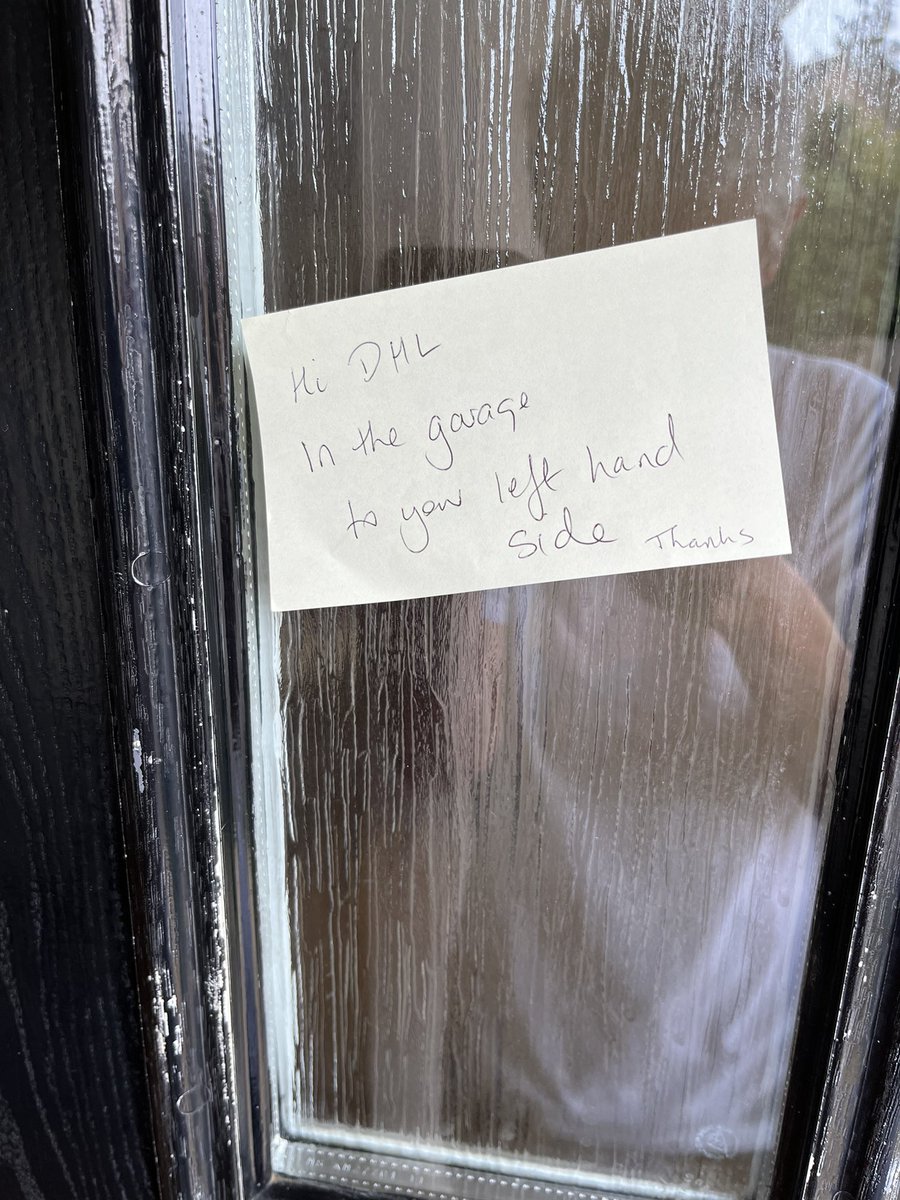 Hi DHL
In the garage
to your left hand
side Thanks